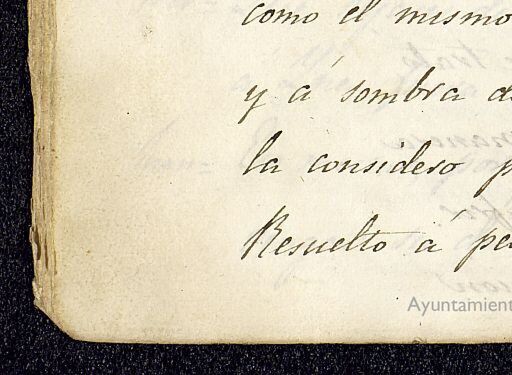 como el mismo
y á sombra de
la considero p
Resuelto á pe
Ayuntamient